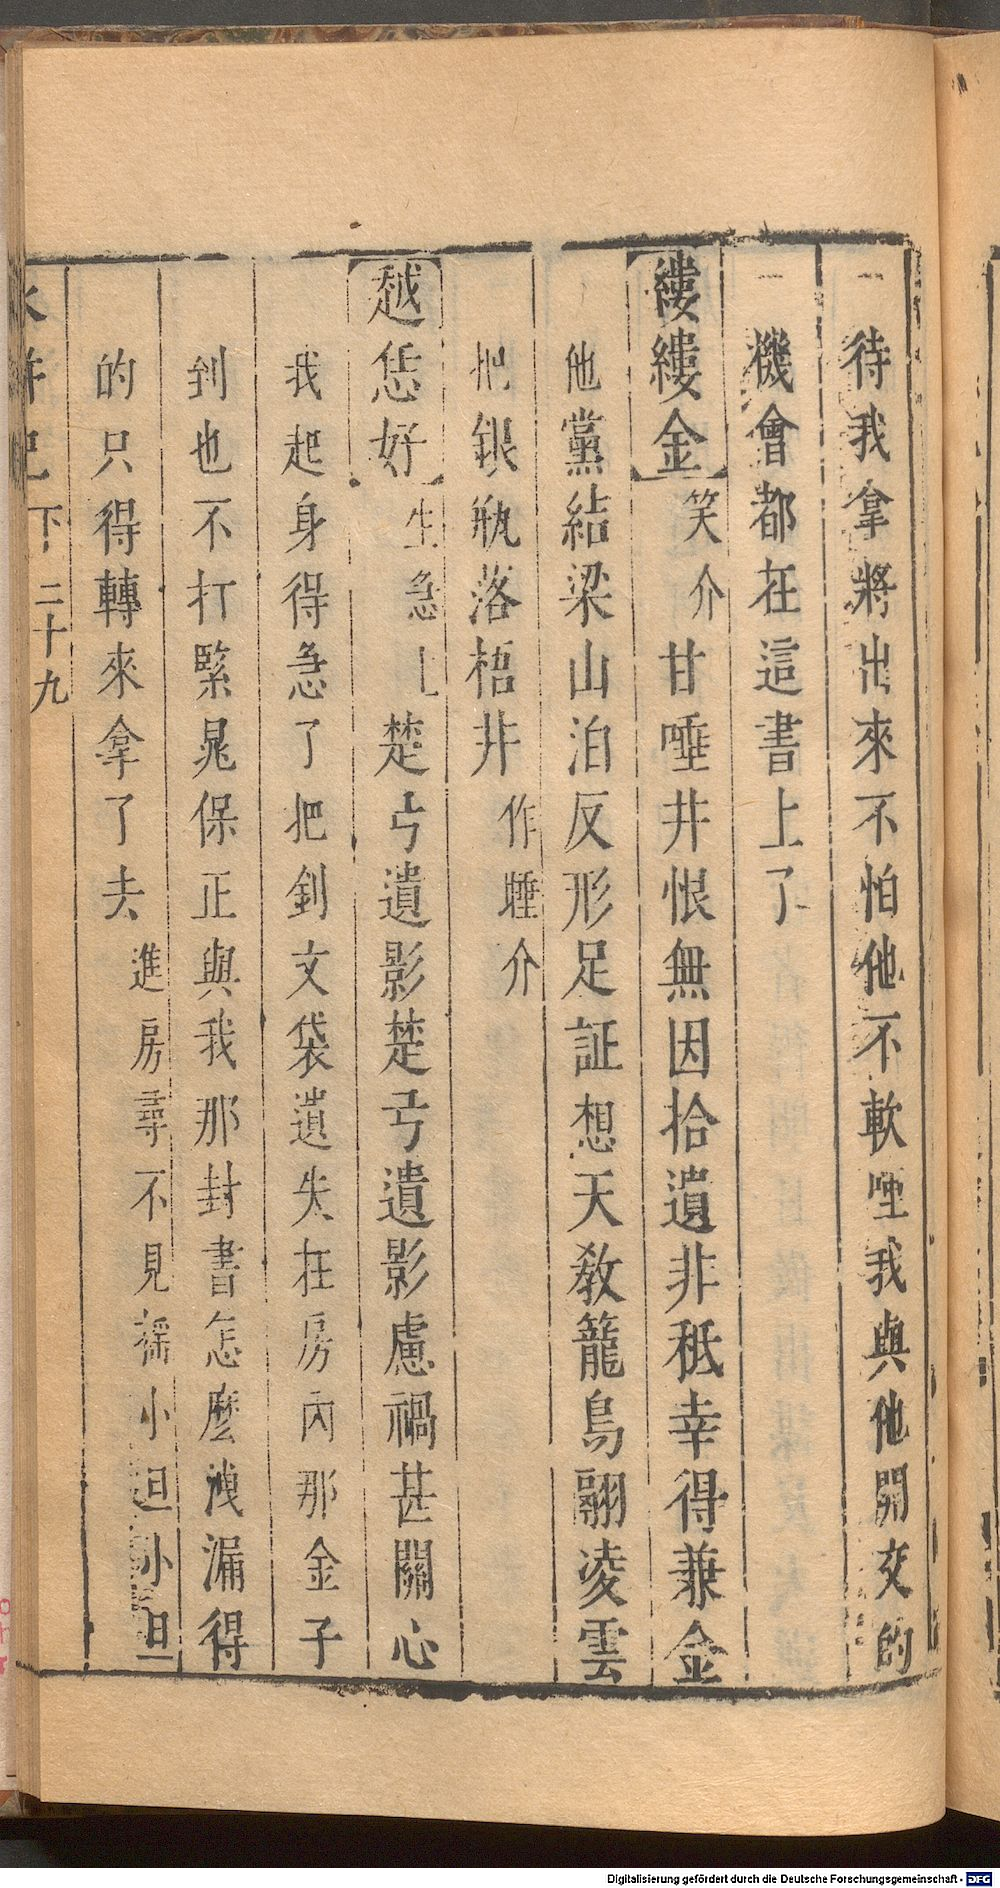 待我拿將出來不怕他不軟唾我與他開交的
機會都在這書上了
縷縷金笑介甘唾井恨無因拾遺非秪幸得兼金
他黨結梁山泊反形足証想天教籠鳥翮凌雲
把銀瓶落梧井作睡介
越恁好生急上楚弓遺影楚弓遺影慮禍甚關心
我起身得急了把釗文袋遺失在房內那金子
到也不打緊晁保正與我那封書怎麼洩漏得
的只得轉來拿了去進房尋不見搖小旦小旦
水滸記下二十九
Digitalisierung gefördert durch die Deutsche Forschungsgemeinschaft - DFG